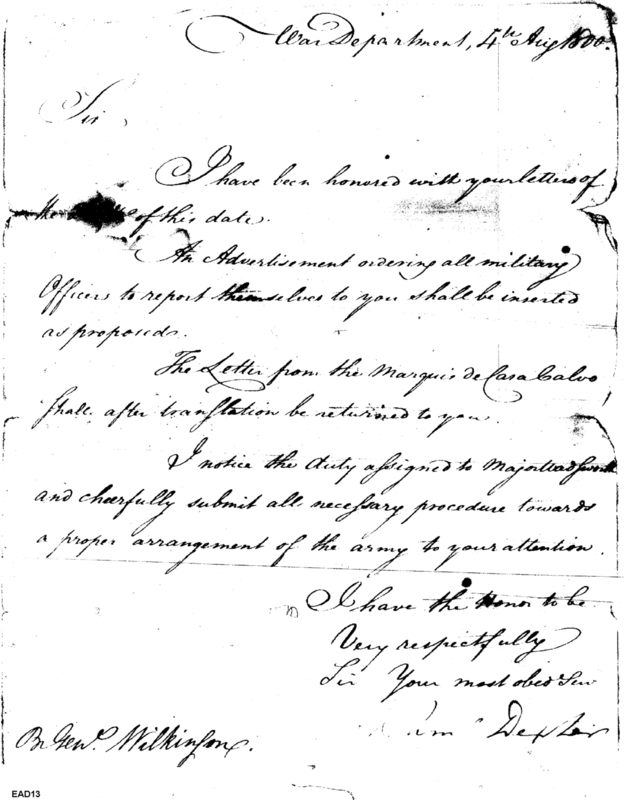 War Department, 4th Aug 1800.
Sir
I have been honored with your letters of
the of this date.
An Advertisement ordering all military
Officers to report themselves to you shall be inserted
as proposed.
The Letter from the Marquis de Casa Calvo
shall after translation be returned to you.
I notice the duty assigned to Major
and cheerfully submit all necessary procedure towards
a proper arrangement of the army to your attention.
I have the Honor to be
Very respectfully
Sir Your most obed Serv
Dexter
Br Genl. Wilkinson.
EAD13